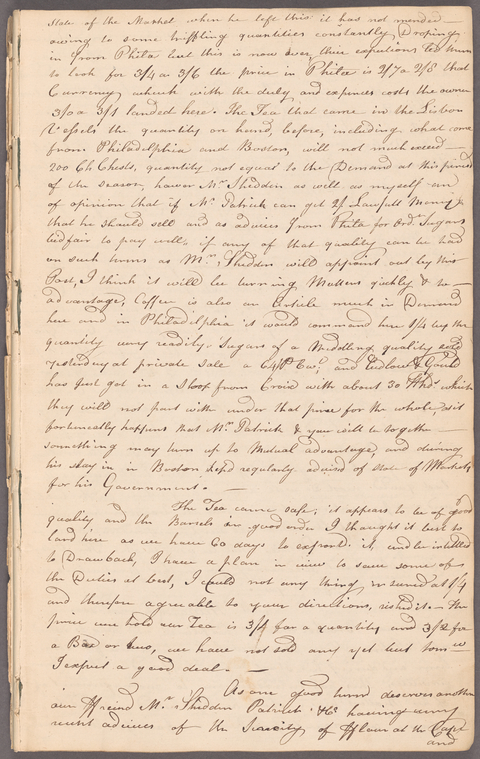 State of the Market when he left this it has not mended
owing to some triffling quantities constantly Droping
in from Phila but this is now over, their expections are
to look for 3/4 a 3/6 the price in Phila is 2/7 a 2/8 that
Currency which with the duty and expences costs the owner
3/0 a 3/1 landed here. The Tea that came in the Lisbon
Vessels the quantity on hand, before, including what come
from Philadelphia and Boston, will not much exceed
200 Ch Chests, quantity not equal to the Demand at this
of the season, hower Mr. Shedden as well as myself
of opinion that if Mr. Patrick can get 2/ Lawfull Money
that he should sell and as advices from Phila for Ord. Sugars
bid fair to pay well, if any of that quality can be had
on such terms as Mr. Shedden will appoint out by this
Post, I think it will be turning Matters quickly & to
advantage, Coffee is also an Article much in Demand
here and in Philadilphia it would command here 1/4 by the
quantity very readily. Sugars of a Middling quality sold
yesterday at private sale a 64/ Cw. and Ludlow & Gould
has just got in a Sloop from Croix with about 30 Hhd. which
they will not part with under that price for the whole, as it
fortuneatly happens that Mr. Patrick & you will be togethe
something may turn up to Mutual advantage, and during
his stay in in Boston keep'd regularly advised of State of Markets
for his Government.
The Tea came safe; it appears to be of good
quality and the Barrels in good order I thought it best to
land here as we have 60 days to export it, and be intitled
to Drawback, I have a plan in view to save some of
the Duties at best, I could not any thing insured at 1/4
and therefore agreable to your directions, risked it. The
price we hold our Tea is 3/1 for a quantity and 3/2 for
a Box or two, we have not sold any yet but tom
I expect a good deal.
As one good turn deserves another
our ffreind Mr. Shedden Patrick & Co. having very
recent advices of the Scarcity of fflour at the Cape
and